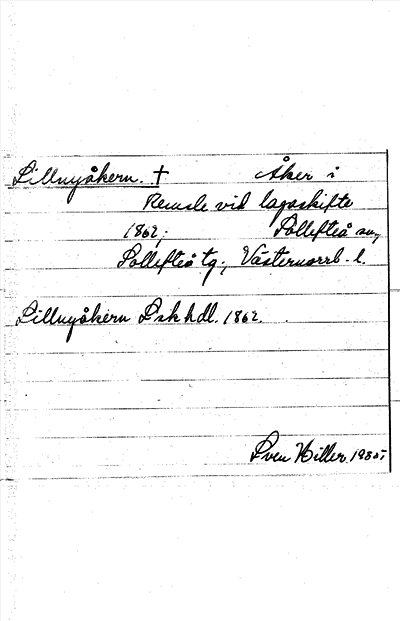 Lillnyåkern. † Åker i
Remsle vid lagaskifte
1862; Sollefteå sn,
Sollefteå tg., Västernorrl. l.
Lillnyåkern Lskhdl. 1862.
Sven Hiller 1980;